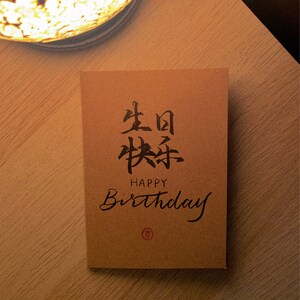 生日
快乐
HAPPY
Birthday